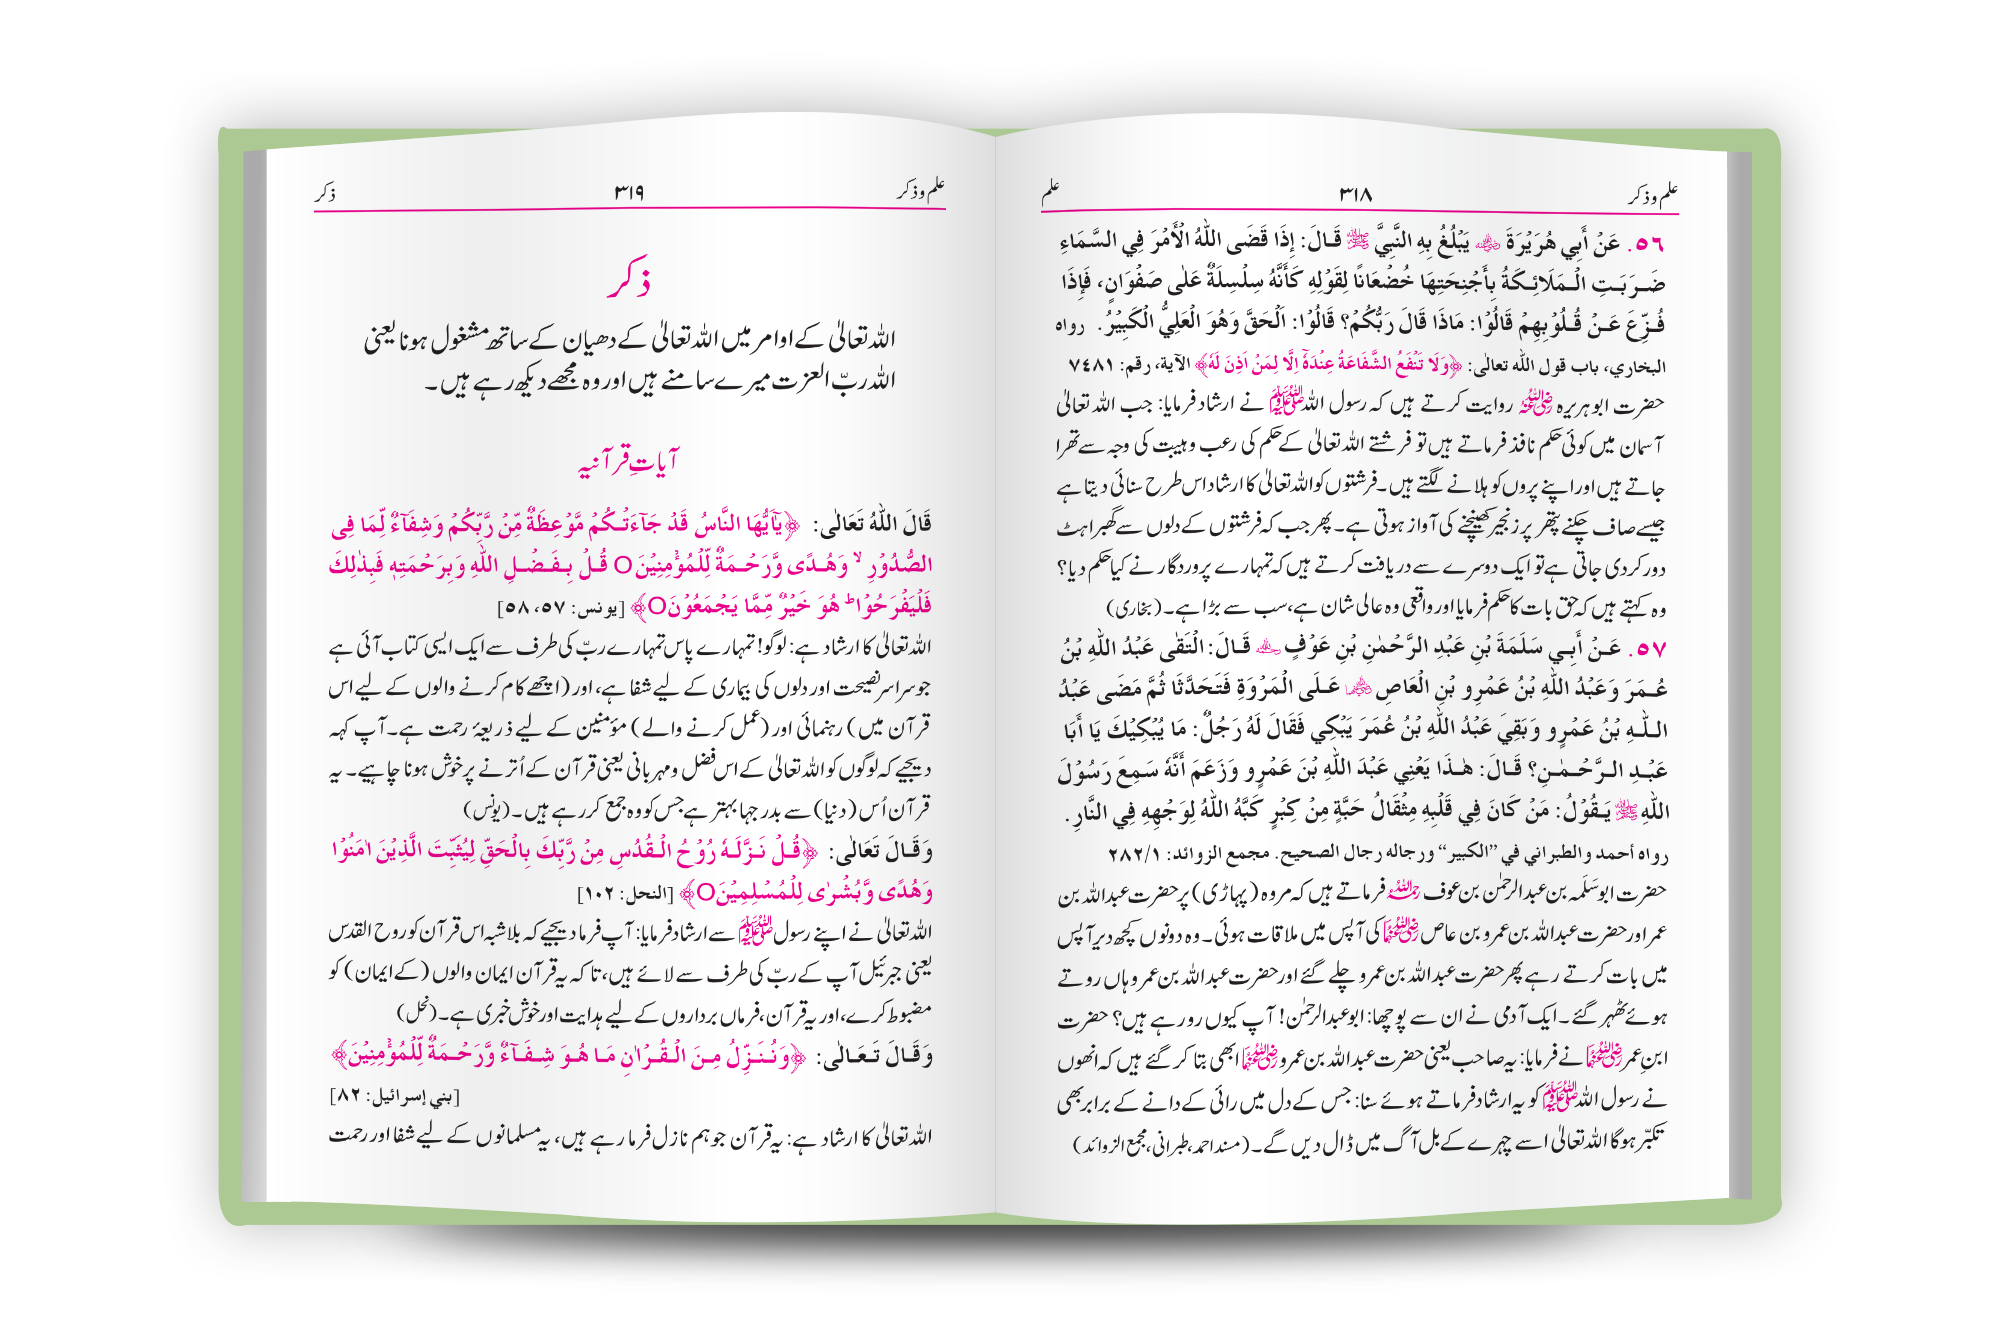 علم و ذکر ۳۱۸ علم
٥٦. عَنْ أَبِي هُرَيْرَةَ رضي الله عنه يَبْلُغُ بِهِ النَّبِيَّ ﷺ قَالَ: إِذَا قَضَى اللّٰهُ الْأَمْرَ فِي السَّمَاءِ
ضَرَبَتِ الْمَلَائِكَةُ بِأَجْنِحَتِهَا خُضْعَانًا لِقَوْلِهِ كَأَنَّهُ سِلْسِلَةٌ عَلٰى صَفْوَانٍ، فَإِذَا
فُزِّعَ عَنْ قُلُوْبِهِمْ قَالُوْا: مَاذَا قَالَ رَبُّكُمْ؟ قَالُوْا: اَلْحَقَّ وَهُوَ الْعَلِيُّ الْكَبِيْرُ. رواه
البخاري، باب قول اللّٰه تعالى: ﴿وَلَا تَنْفَعُ الشَّفَاعَةُ عِنْدَهٗٓ اِلَّا لِمَنْ اَذِنَ لَهٗ﴾ الآية، رقم: ٧٤٨١
حضرت ابوہریرہ رضی اللہ عنہ روایت کرتے ہیں کہ رسول اللہ ﷺ نے ارشاد فرمایا: جب اللہ تعالیٰ
آسمان میں کوئی حکم نافذ فرماتے ہیں تو فرشتے اللہ تعالیٰ کے حکم کی رعب و ہیبت کی وجہ سے تھرا
جاتے ہیں اور اپنے پروں کو ہلانے لگتے ہیں۔ فرشتوں کو اللہ تعالیٰ کا ارشاد اس طرح سنائی دیتا ہے
جیسے صاف چکنے پتھر پر زنجیر کھینچنے کی آواز ہوتی ہے۔ پھر جب کہ فرشتوں کے دلوں سے گھبراہٹ
دور کر دی جاتی ہے تو ایک دوسرے سے دریافت کرتے ہیں کہ تمہارے پروردگار نے کیا حکم دیا؟
وہ کہتے ہیں کہ حق بات کا حکم فرمایا اور واقعی وہ عالی شان ہے، سب سے بڑا ہے۔ (بخاری)
٥٧. عَنْ أَبِي سَلَمَةَ بْنِ عَبْدِ الرَّحْمٰنِ بْنِ عَوْفٍ رحمه الله قَالَ: الْتَقٰى عَبْدُ اللّٰهِ بْنُ
عُمَرَ وَعَبْدُ اللّٰهِ بْنُ عَمْرِو بْنِ الْعَاصِ رضي الله عنهما عَلَى الْمَرْوَةِ فَتَحَدَّثَا ثُمَّ مَضَى عَبْدُ
اللّٰهِ بْنُ عَمْرٍو وَبَقِيَ عَبْدُ اللّٰهِ بْنُ عُمَرَ يَبْكِي فَقَالَ لَهُ رَجُلٌ: مَا يُبْكِيْكَ يَا أَبَا
عَبْدِ الرَّحْمٰنِ؟ قَالَ: هٰذَا يَعْنِي عَبْدَ اللّٰهِ بْنَ عَمْرٍو وَزَعَمَ أَنَّهٗ سَمِعَ رَسُوْلَ
اللّٰهِ ﷺ يَقُوْلُ: مَنْ كَانَ فِي قَلْبِهِ مِثْقَالُ حَبَّةٍ مِنْ كِبْرٍ كَبَّهُ اللّٰهُ لِوَجْهِهِ فِي النَّارِ.
رواه أحمد والطبراني في ”الكبير“ ورجاله رجال الصحيح. مجمع الزوائد: ٢٨٢/١
حضرت ابوسَلَمہ بن عبدالرحمٰن بن عوف رحمہ اللہ فرماتے ہیں کہ مروہ (پہاڑی) پر حضرت عبداللہ بن
عمر اور حضرت عبداللہ بن عمرو بن عاص رضی اللہ عنہما کی آپس میں ملاقات ہوئی۔ وہ دونوں کچھ دیر آپس
میں بات کرتے رہے پھر حضرت عبداللہ بن عمرو چلے گئے اور حضرت عبداللہ بن عمر وہاں روتے
ہوئے ٹھہر گئے۔ ایک آدمی نے ان سے پوچھا: ابوعبدالرحمٰن! آپ کیوں رو رہے ہیں؟ حضرت
ابنِ عمر رضی اللہ عنہما نے فرمایا: یہ صاحب یعنی حضرت عبداللہ بن عمرو رضی اللہ عنہما ابھی بتا کر گئے ہیں کہ انھوں
نے رسول اللہ ﷺ کو یہ ارشاد فرماتے ہوئے سنا: جس کے دل میں رائی کے دانے کے برابر بھی
تکبّر ہوگا اللہ تعالیٰ اسے چہرے کے بل آگ میں ڈال دیں گے۔ (مسند احمد، طبرانی، مجمع الزوائد)
علم و ذکر ۳۱۹ ذکر
ذکر
اللہ تعالیٰ کے اوامر میں اللہ تعالیٰ کے دھیان کے ساتھ مشغول ہونا یعنی
اللہ ربّ العزت میرے سامنے ہیں اور وہ مجھے دیکھ رہے ہیں۔
آیاتِ قرآنیہ
قَالَ اللّٰهُ تَعَالٰى: ﴿يٰٓاَيُّهَا النَّاسُ قَدْ جَآءَتْكُمْ مَّوْعِظَةٌ مِّنْ رَّبِّكُمْ وَشِفَآءٌ لِّمَا فِى
الصُّدُوْرِ ۙ وَهُدًى وَّرَحْمَةٌ لِّلْمُؤْمِنِيْنَ○ قُلْ بِفَضْلِ اللّٰهِ وَبِرَحْمَتِهٖ فَبِذٰلِكَ
فَلْيَفْرَحُوْا ؕ هُوَ خَيْرٌ مِّمَّا يَجْمَعُوْنَ○﴾ [يونس: ٥٧، ٥٨]
اللہ تعالیٰ کا ارشاد ہے: لوگو! تمہارے پاس تمہارے ربّ کی طرف سے ایک ایسی کتاب آئی ہے
جو سراسر نصیحت اور دلوں کی بیماری کے لیے شفا ہے، اور (اچھے کام کرنے والوں کے لیے اس
قرآن میں) رہنمائی اور (عمل کرنے والے) مؤمنین کے لیے ذریعۂ رحمت ہے۔ آپ کہہ
دیجیے کہ لوگوں کو اللہ تعالیٰ کے اس فضل و مہربانی یعنی قرآن کے اُترنے پر خوش ہونا چاہیے۔ یہ
قرآن اُس (دنیا) سے بدرجہا بہتر ہے جس کو وہ جمع کر رہے ہیں۔ (یونس)
وَقَالَ تَعَالٰى: ﴿قُلْ نَزَّلَهٗ رُوْحُ الْقُدُسِ مِنْ رَّبِّكَ بِالْحَقِّ لِيُثَبِّتَ الَّذِيْنَ اٰمَنُوْا
وَهُدًى وَّبُشْرٰى لِلْمُسْلِمِيْنَ○﴾ [النحل: ١٠٢]
اللہ تعالیٰ نے اپنے رسول ﷺ سے ارشاد فرمایا: آپ فرما دیجیے کہ بلاشبہ اس قرآن کو روح القدس
یعنی جبرئیل آپ کے ربّ کی طرف سے لائے ہیں، تاکہ یہ قرآن ایمان والوں (کے ایمان) کو
مضبوط کرے، اور یہ قرآن، فرماں برداروں کے لیے ہدایت اور خوش خبری ہے۔ (نحل)
وَقَالَ تَعَالٰى: ﴿وَنُنَزِّلُ مِنَ الْقُرْاٰنِ مَا هُوَ شِفَآءٌ وَّرَحْمَةٌ لِّلْمُؤْمِنِيْنَ﴾
[بني إسرائيل: ٨٢]
اللہ تعالیٰ کا ارشاد ہے: یہ قرآن جو ہم نازل فرما رہے ہیں، یہ مسلمانوں کے لیے شفا اور رحمت